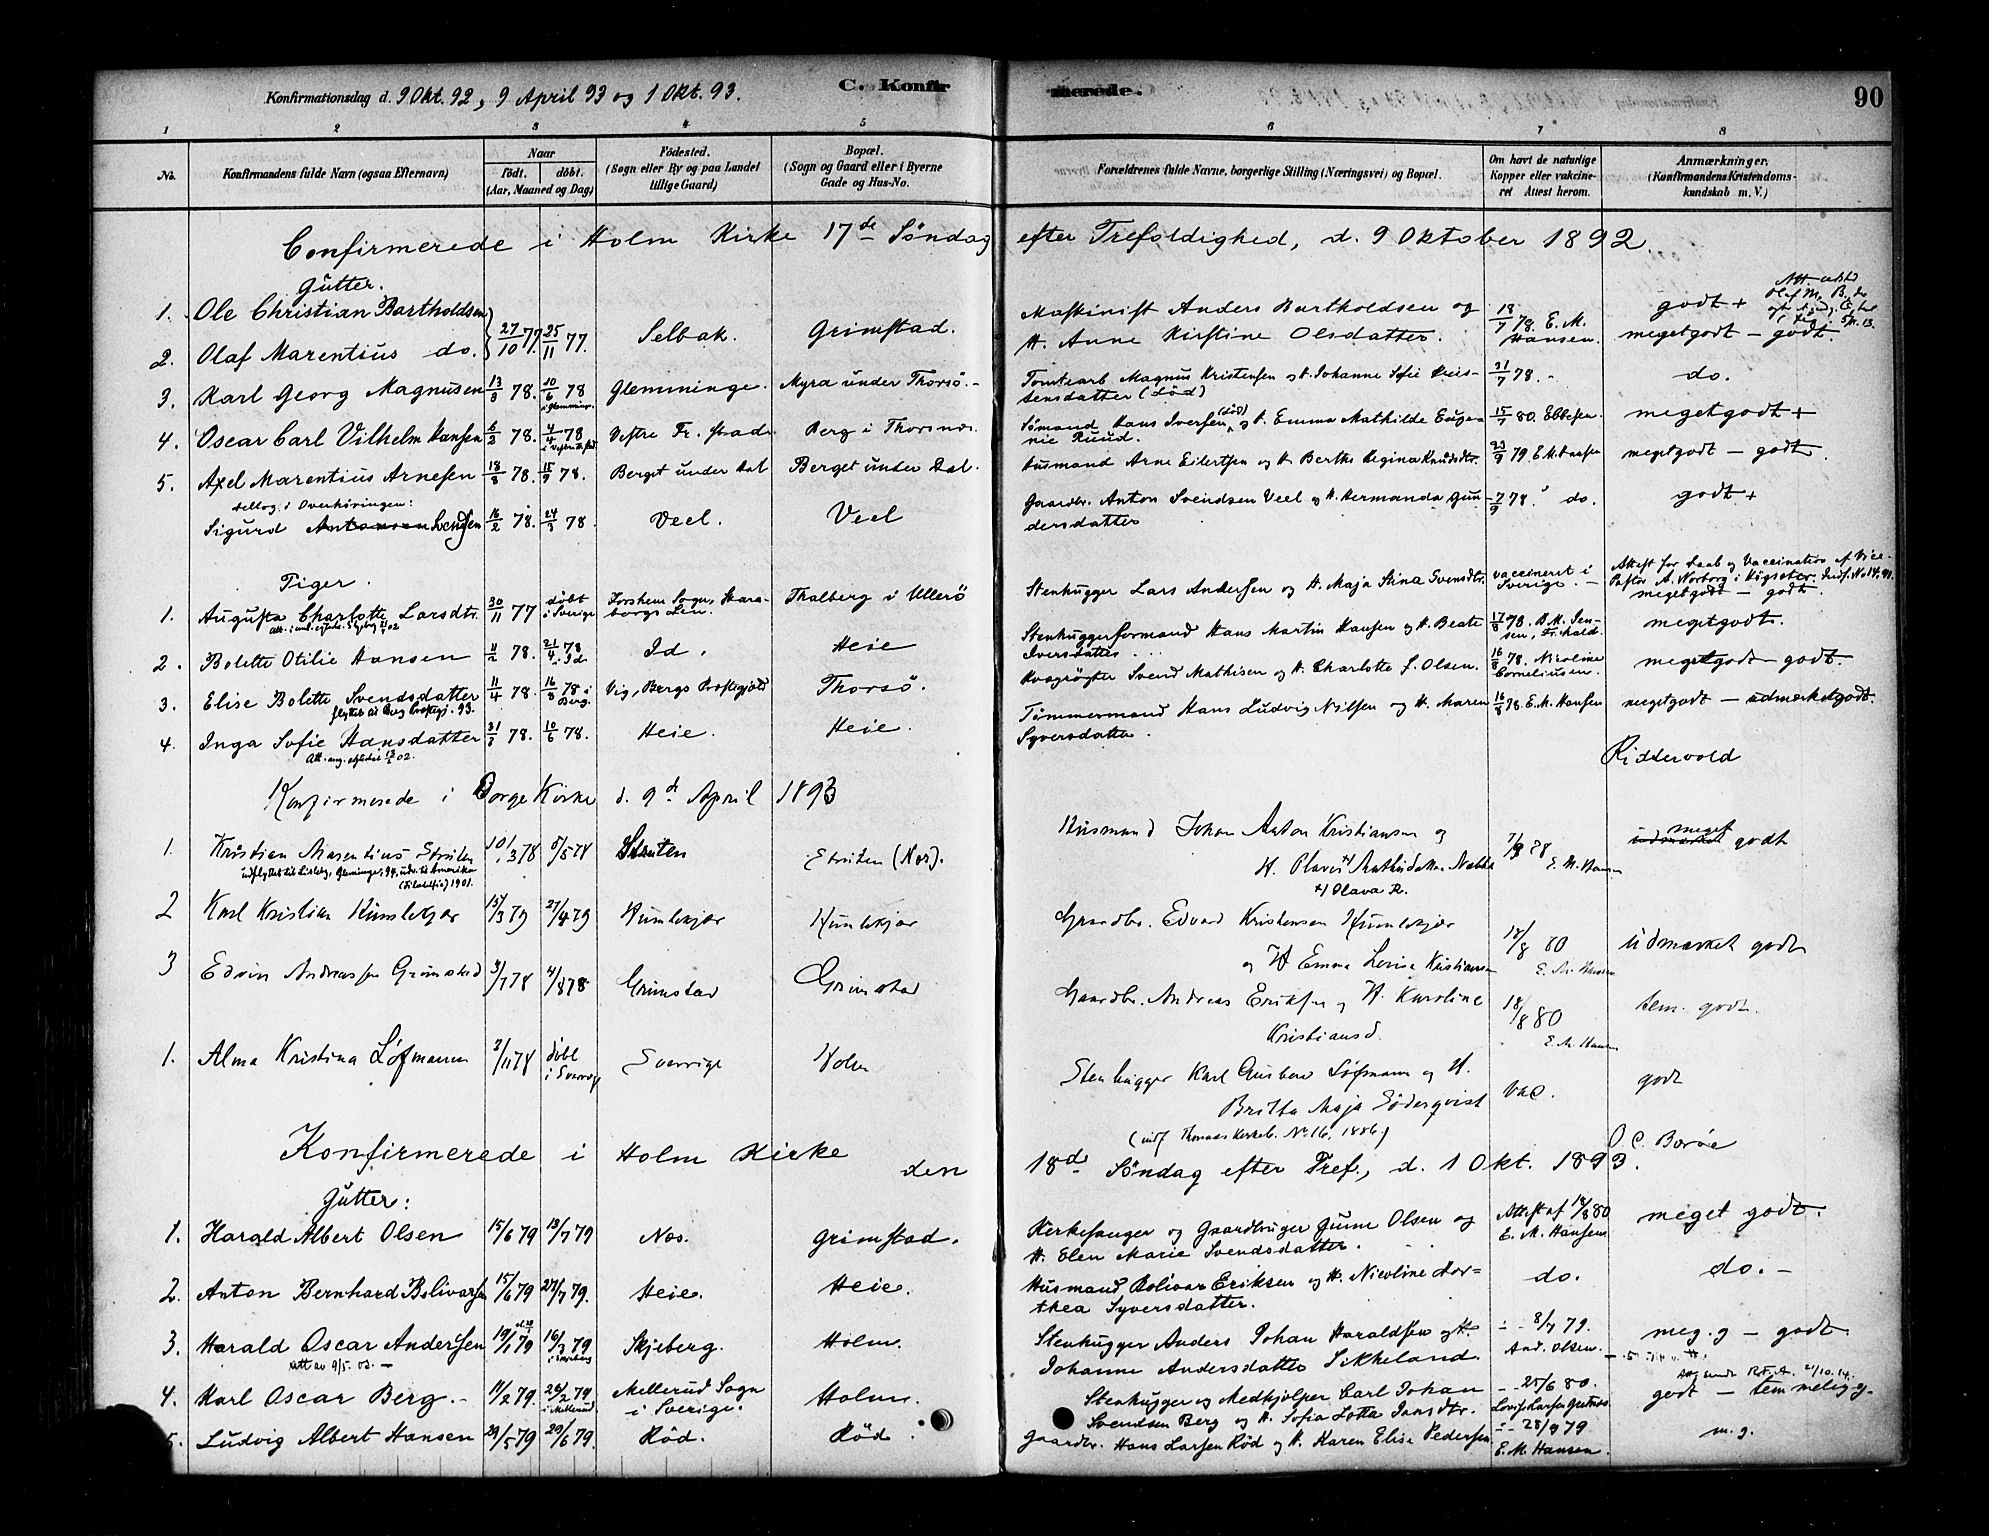 Konfirmationsdag d. 9 Okt. 92, 9 April 93 og 1 Okt. 93.
C. Konfirmerede.
90
1 2 3 4 5 6 7 8
No.
Konfirmandens fulde Navn (ogsaa Efternavn)
Naar
født. døbt.
(Aar, Maaned og Dag)
Fødested.
(Sogn eller By og paa Landet
tillige Gaard)
Bopæl.
(Sogn og Gaard eller i Byerne
Gade og Hus-No.
Forældrenes fulde Navne, borgerlige Stilling (Næringsvei) og Bopæl.
Om havt de naturlige
Kopper eller vakcine-
ret Attest herom.
Anmærkninger,
(Konfirmandens Kristendoms-
kundskab m. V.)
Confirmerede i Holm Kirke 17de Søndag efter Trefoldighed, d. 9 Oktober 1892.
Gutter.
1. Ole Christian Bartholdsen 27/10 77. 25/11 77. Selbak. Grimstad. Maskinist Anders Bartholdsen og 18/7 78. E. M. Hansen. godt +
2. Olaf Marentius do. H. Anne Kirstine Olsdatter. megetgodt – godt.
3. Karl Georg Magnusen 13/3 78. 10/6 78 i Glemminge. Glemminge. Myra under Thorsø. Tomtearb Magnus Kristensen og H. Johanne Sofie Kris-
tensdatter (død) 31/7 78. do.
4. Oscar Carl Vilhelm Hansen 6/2 78. 4/4 78 Vestre Fr. stad Berg i Thorsnes. Sømand Hans Iversen (død) og H. Emma Mathilde Euge-
nie Ruud. 15/7 80. Ebbesen. megetgodt +
5. Axel Marentius Arnesen 18/8 78. 15/9 78. Berget under Dal Berget under Dal. Husmand Arne Eilertsen og H. Berthe Regina Knudsdtr. 23/9 79. E. M. Hansen megetgodt – godt.
deltog i Overhøringen:
Sigurd Antonsen Svendsen 16/2 78. 24/3 78 Veel. Veel Gaardbr. Anton Svendsen Veel og H. Hermanda Gun-
dersdatter 7/9 78. do. godt +
Piger.
1. Augusta Charlotte Larsdtr. 30/11 77 døbt i Sverige Forshem Sogn, Skara-
borgs Len. Thalberg i Ullerø Stenhugger Lars Andersen og H. Maja Stina Svensdtr. vaccineret i Sverige. – Attest for Daab og Vaccination af Vice-
Pastor A. Norborg i
megetgodt – godt.
2. Bolette Otilie Hansen 11/2 78. 21/4 78 i Id. Id. Heie Stenhuggerformand Hans Martin Hansen og H. Beate
Iversdatter 17/8 78. B. M. Jen-
sen, Fr.hald. megetgodt.
3. Elise Bolette Svendsdatter 11/4 78. 16/8 78 i Berg. Vig, Bergs Prestegjeld Thorsø. Kvægrøgter Svend Mathisen og H. Charlotte f. Olsen. 16/8 78. Nicoline Corneliussen. megetgodt – godt.
flyttet til Berg Prestegj. 93.
4. Inga Sofie Hansdatter 31/3 78. 10/6 78. Heie. Heie. Tømmermand Hans Ludvig Nilsen og H. Maren
Syversdatter. 16/8 78. E. M. Hansen megetgodt – udmerketgodt.
Riddervold
Konfirmerede i Borge Kirke d. 9de April 1893
1. Kristian Marentius Struten 10/3 78 5/5 78 Struten Struten (Nes). Husmand Johan Anton Kristiansen og
E. M. Hansen udmerket meget godt
udflyttet til Lisleby, Glemminge, 94, udv. til Amerika
(Filadelfia) 1901.
x) Olava R.
2 Karl Kristian Humlekjær 15/3 79 27/4 79 Humlekjær Humlekjær Gaardbr. Edvard Kristensen Humlekjær
og H Emma Lovisa Kristiansen 18/8 80 E. M. Hansen udmerket godt
3 Edvin Andreassen Grimstad 3/7 78 4/8 78 Grimstad Grimstad Gaardbr. Andreas Eriksen og H. Karoline
Kristiansd. 18/8 80 E. M. Hansen tem. godt.
1. Alma Kristina Løfmann 2/11 78 døbt i Sverrige Sverrige Holm Stenhugger Karl Gustav Løfmann og H.
Britta Maja Söderqvist Vac. godt
(indf Thomas kirkeb. No 16, 1886)
O. C. Borøe
Konfirmerede i Holm Kirke den 18de Søndag efter Tref., d. 1 Okt. 1893.
Gutter:
1. Harald Albert Olsen 15/6 79 13/7 79 Nes. Grimstad. Kirkesanger og Gaardbruger Gunne Olsen og
H. Elen Marie Svendsdatter. Attest af 18/8 80
E. M. Hansen meget godt.
2. Anton Bernhard Bolivarsen 15/6 79 27/7 79. Heie. Heie. Husmand Bolivar Eriksen og H. Nicoline Dor=
thea Syversdatter. do. do. –
3. Harald Oscar Andersen 19/1 79 16/3 79 Skjeberg. Holm. Stenhugger Anders Johan Haraldsen og H.
Johanne Andersdatter Sikkeland. 8/7 79.
And. Olsen. meg. g – godt
att av 9/5. 03. –
4. Karl Oscar Berg. – 11/2 79. 26/2 79. i Mellerud. Mellerud Sogn
i Sverige. Holm. Stenhugger og Medhjælper Carl Johan
Svendsen Berg og H. Sofia Lotta Jansdtr. 25/6 80. godt – temmelig g.
5. Ludvig Albert Hansen 29/5 79 29/6 79. Rød. Rød. Gaardbr. Hans Larsen Rød og H. Karen Elise Pedersen 28/9 79
E. M. Hansen. m. g.